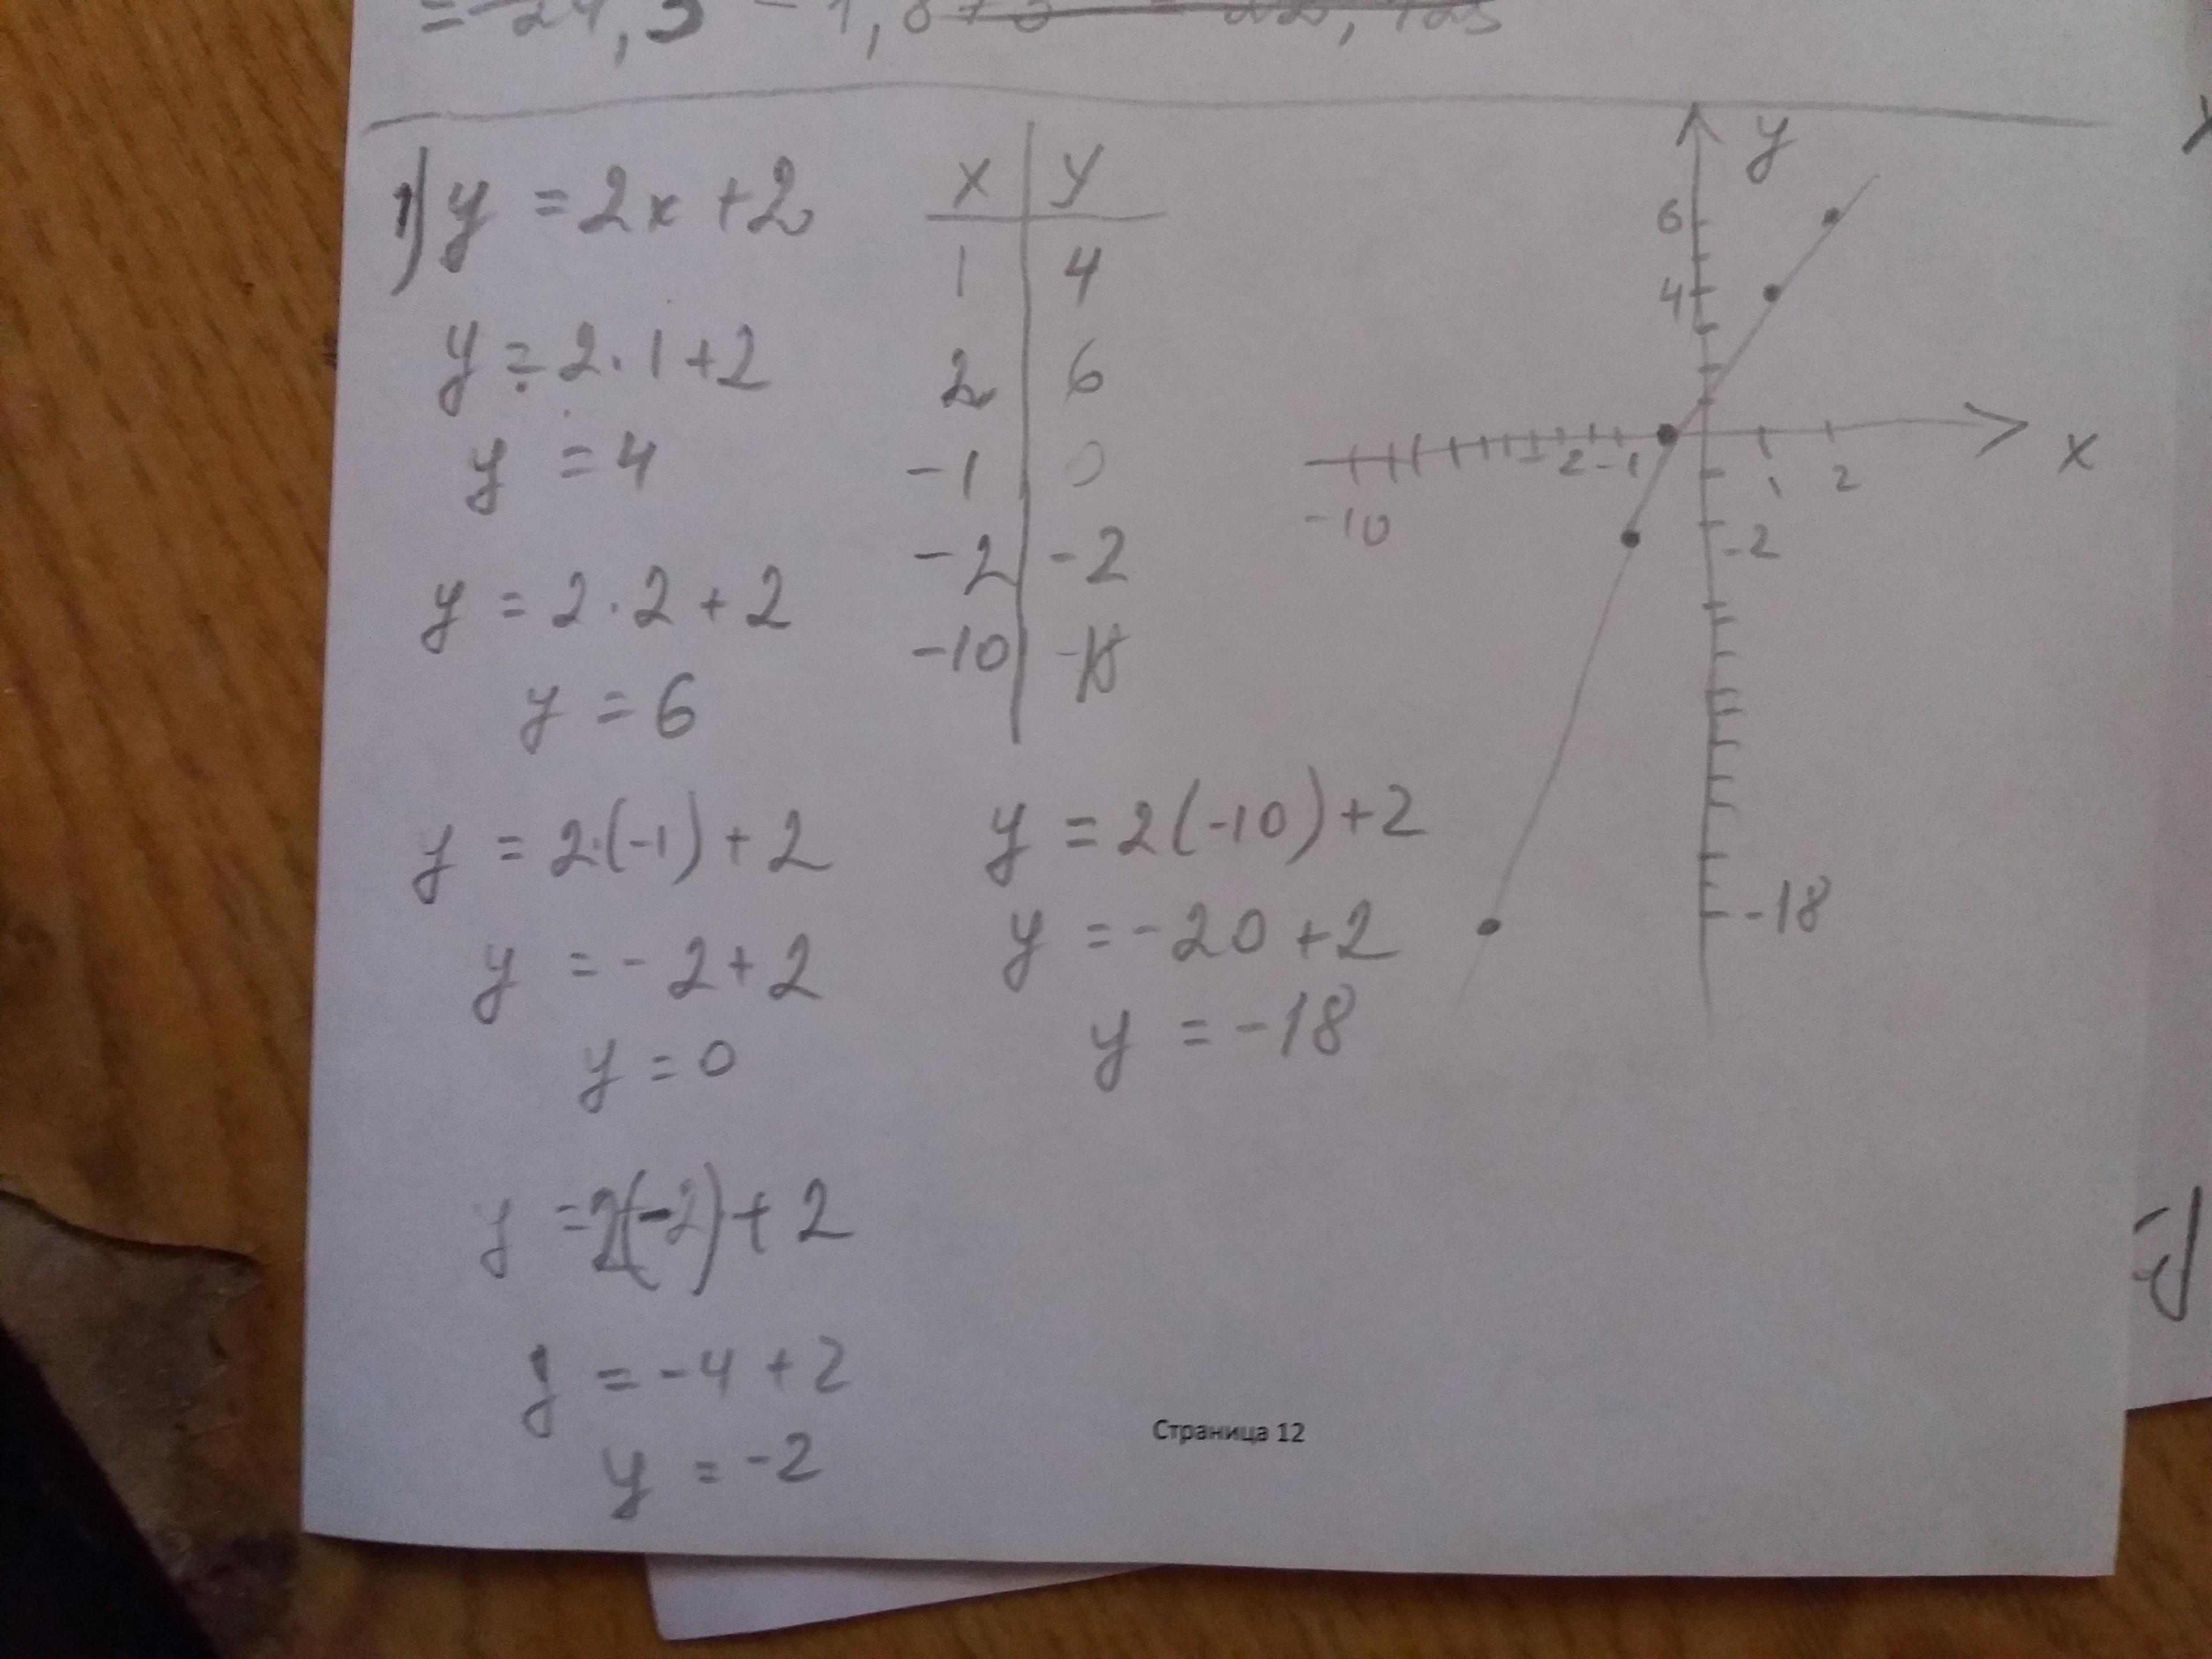 1) y = 2x + 2
y = 2 · 1 + 2
y = 4
y = 2 · 2 + 2
y = 6
y = 2 · (-1) + 2
y = - 2 + 2
y = 0
y = 2(-2) + 2
y = -4 + 2
y = -2
x | y
1 | 4
2 | 6
-1 | 0
-2 | -2
-10 | -18
y = 2(-10) + 2
y = -20 + 2
y = -18
y
6
4
-10
2 -1
1 2
x
-2
-18
Страница 12